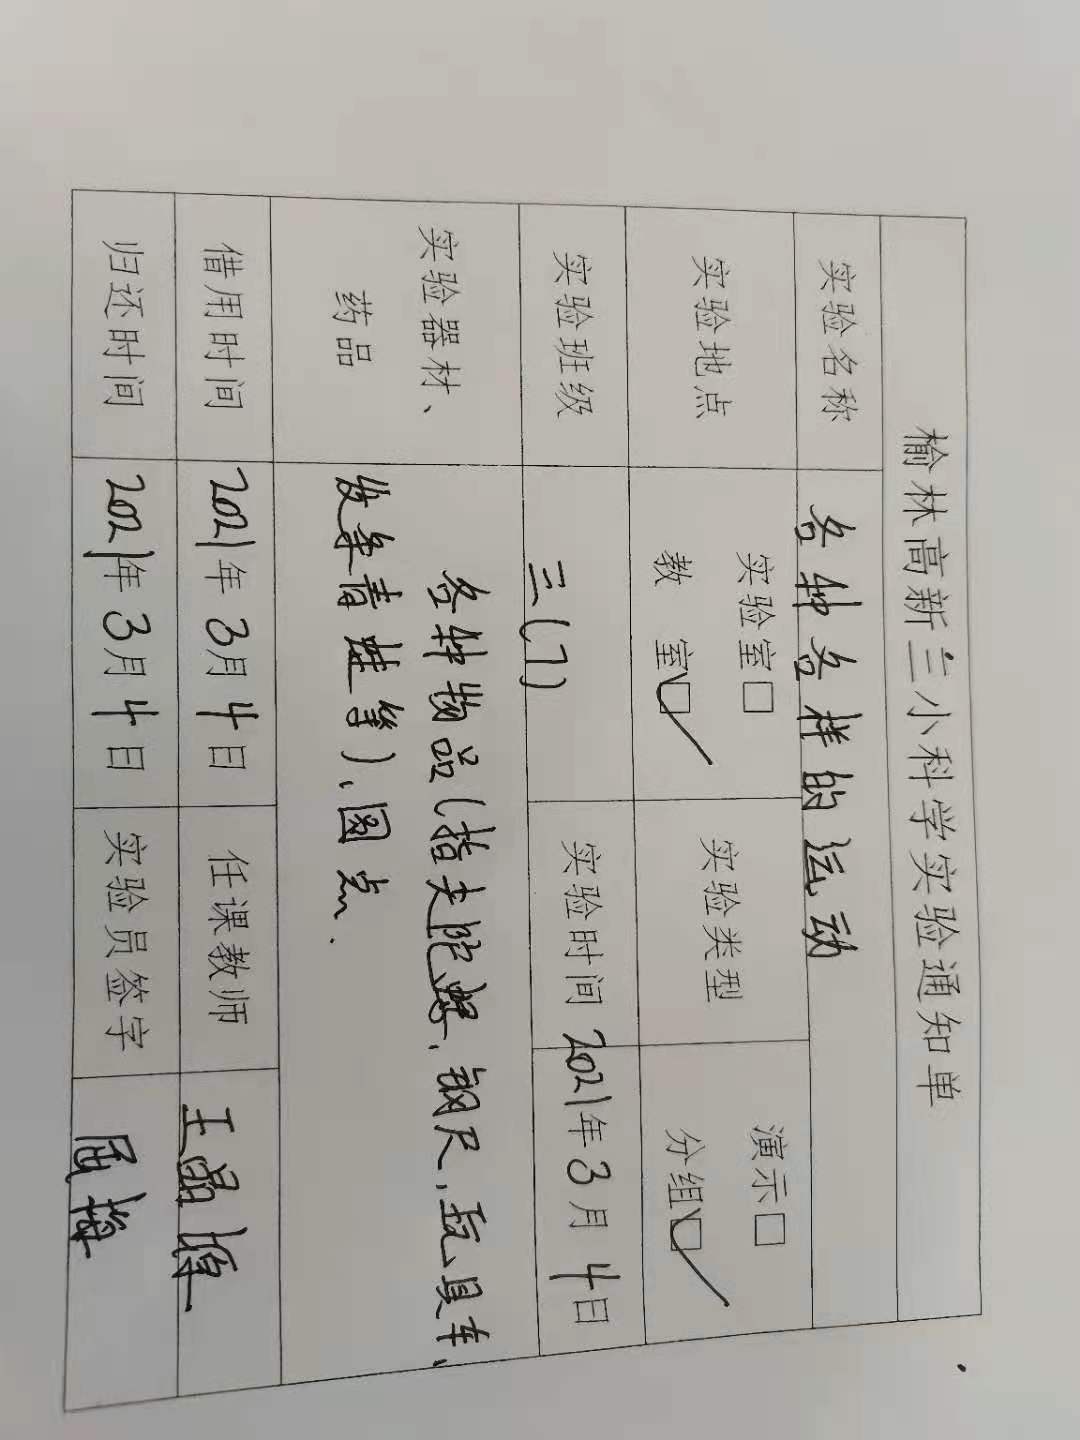 榆林高新三小科学实验通知单
实验名称 各种各样的运动
实验地点 实验室□ 实验类型 演示□
教 室☑ 分组☑
实验班级 三(7) 实验时间 2021年3月4日
实验器材、 各种物品(指尖陀螺、钢尺、玩具车、
药品 发条青蛙等)、圆点.
借用时间 2021年3月4日 任课教师 王晶
归还时间 2021年3月4日 实验员签字